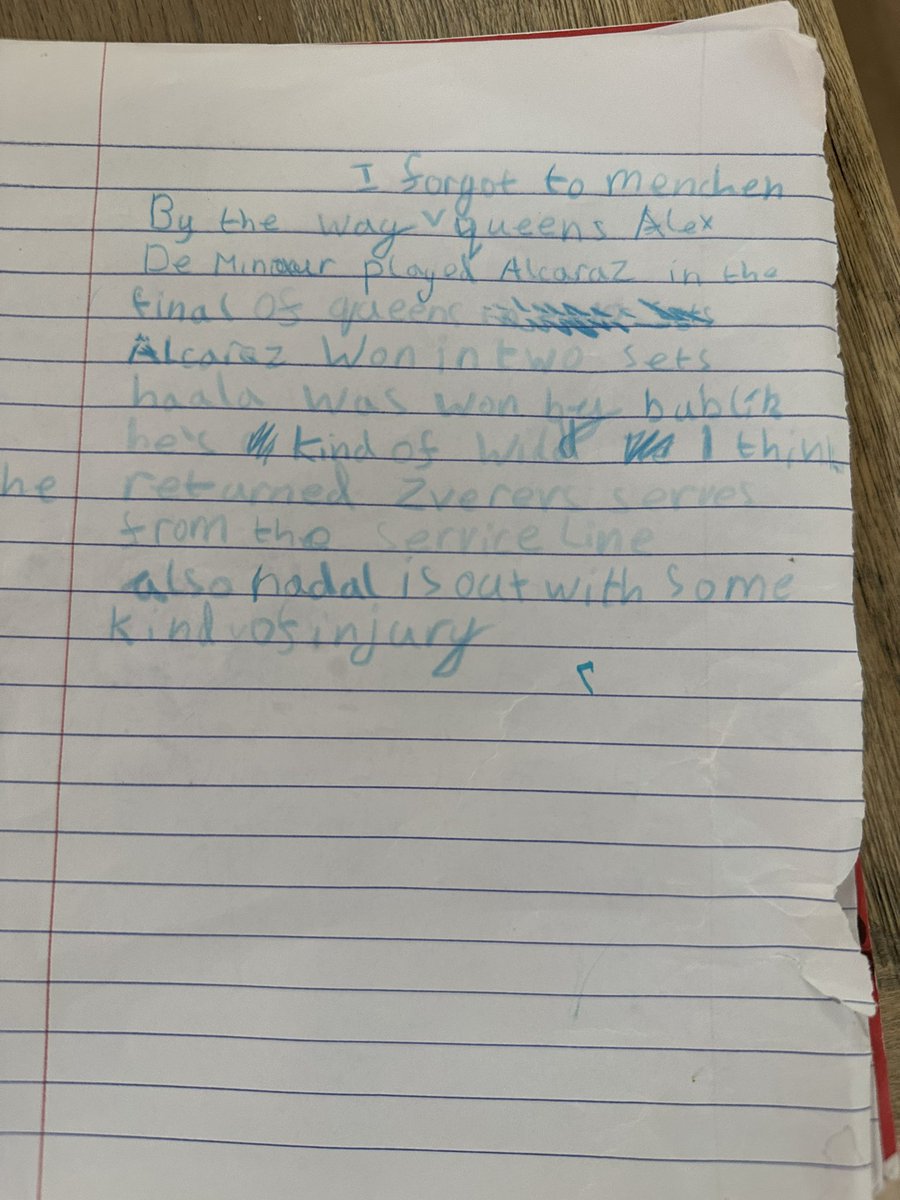 I forgot to menchen
By the way queens Alex
De Minaur played Alcaraz in the
final of queens
Alcaraz Won in two sets
haala was won by bublik
he's kind of wild I think
he returned Zverevs serves
from the service Line
also nadal is out with some
kind of injury